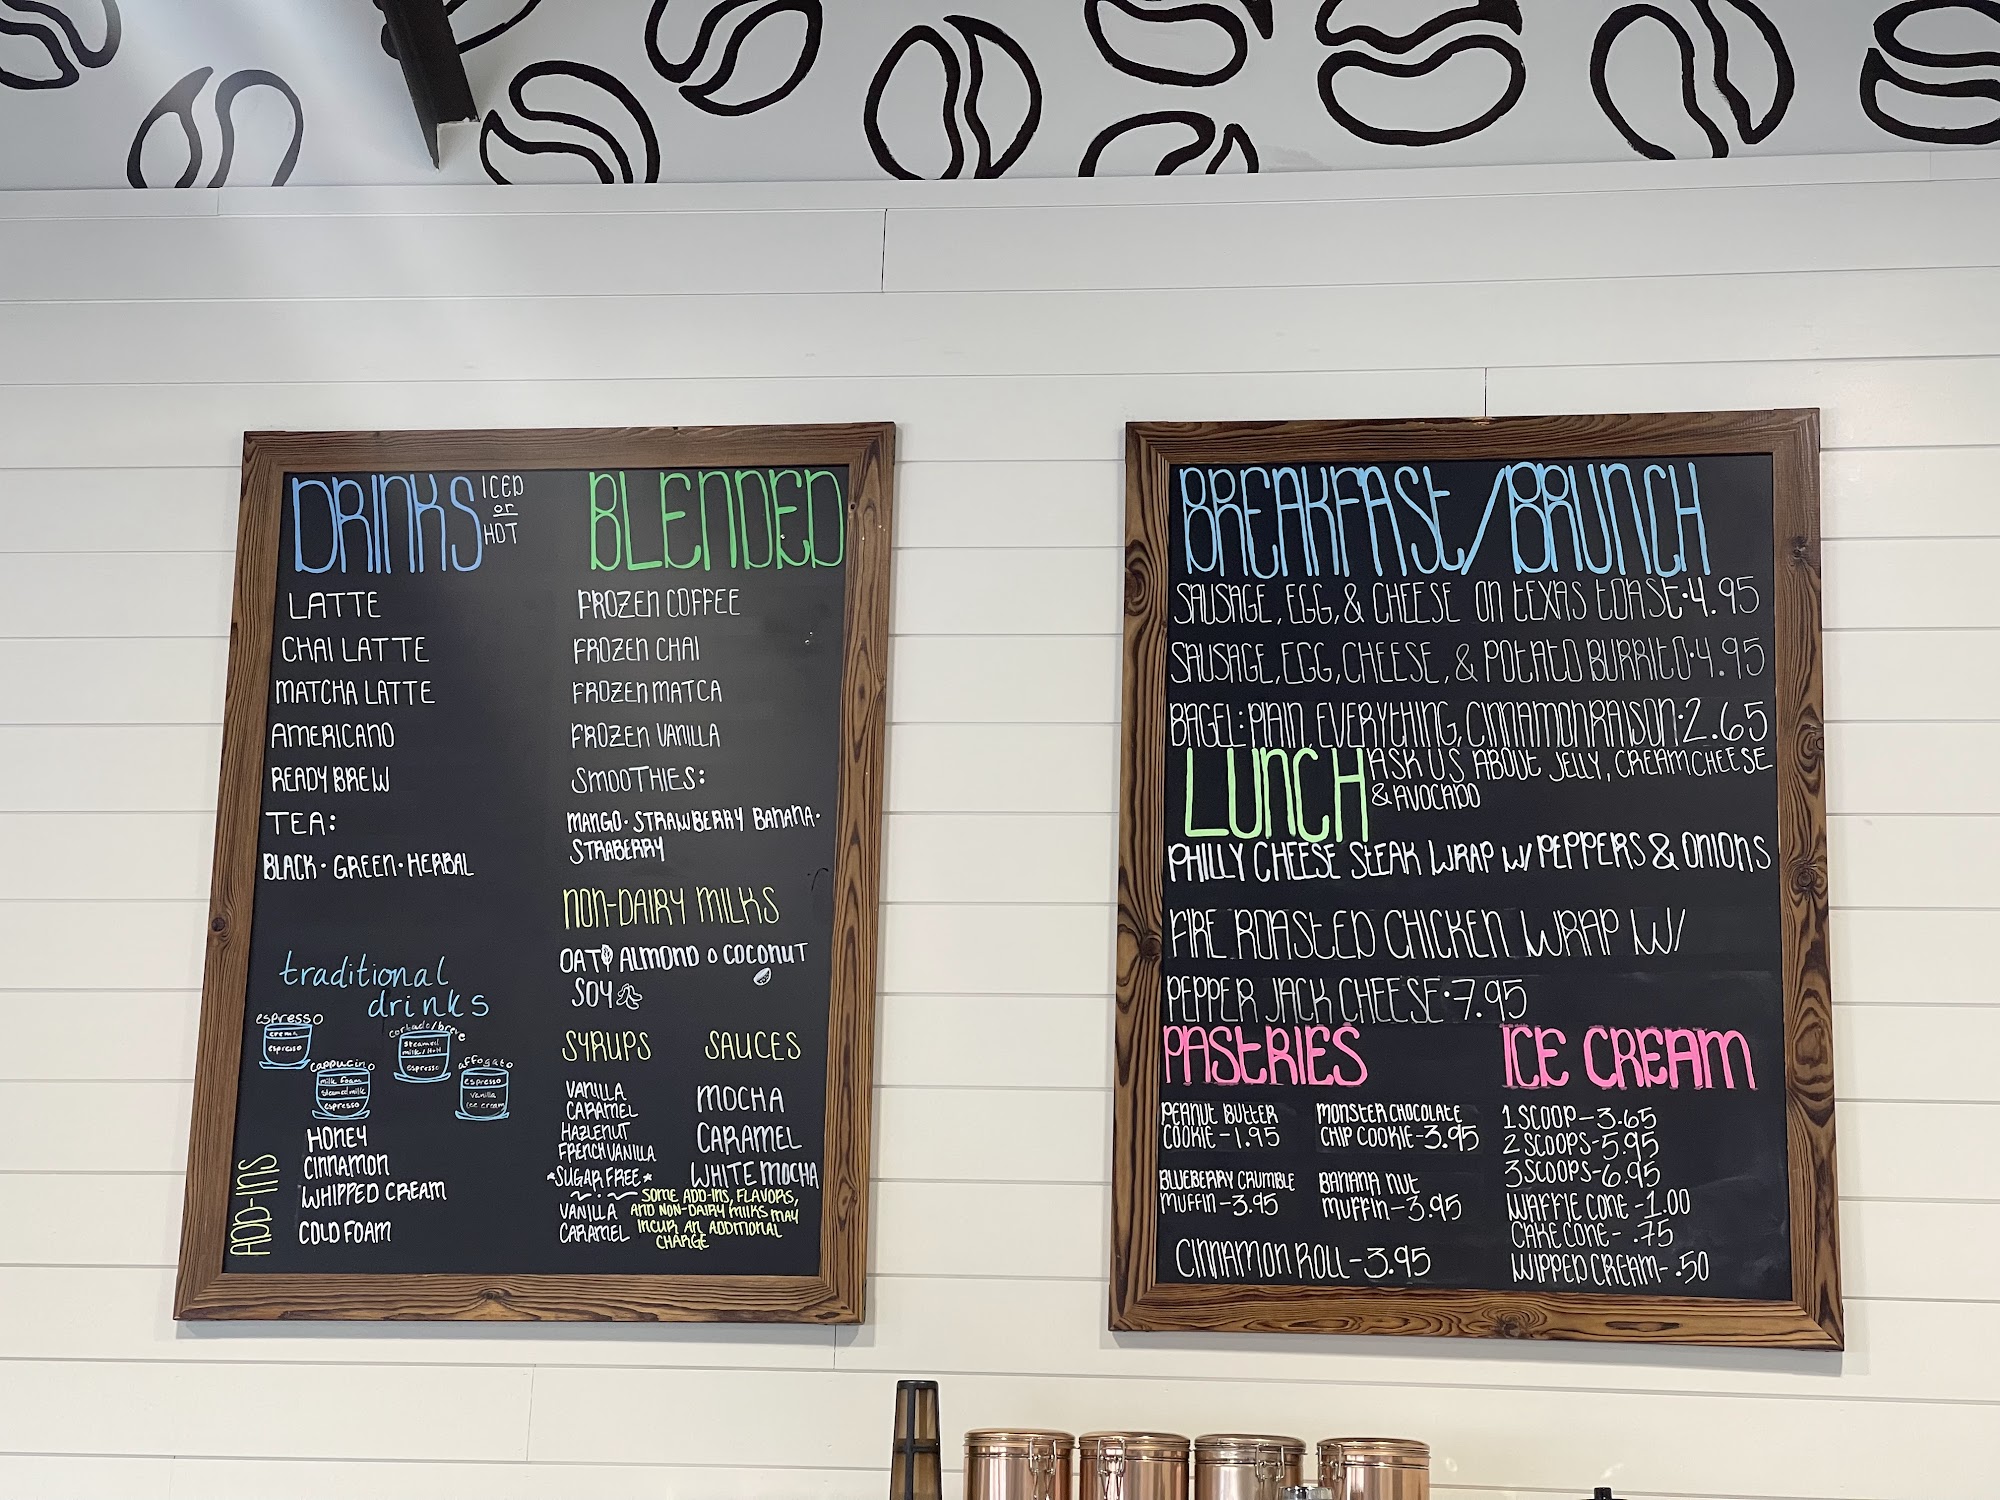 DRINKS ICED
or
HOT
LATTE
CHAI LATTE
MATCHA LATTE
AMERICANO
READY BREW
TEA:
BLACK · GREEN · HERBAL
traditional
drinks
espresso
crema
espresso
cappucino
milk foam
steamed milk
espresso
cortado/breve
steamed
milk/H+H
espresso
affogato
espresso
vanilla
ice cream
ADD-INS
HONEY
CINNAMON
WHIPPED CREAM
COLD FOAM
BLENDED
FROZEN COFFEE
FROZEN CHAI
FROZEN MATCA
FROZEN VANILLA
SMOOTHIES:
MANGO · STRAWBERRY BANANA ·
STRABERRY
NON-DAIRY MILKS
OAT ALMOND COCONUT
SOY
SYRUPS
VANILLA
CARAMEL
HAZLENUT
FRENCH VANILLA
*SUGAR FREE*
VANILLA
CARAMEL
SAUCES
MOCHA
CARAMEL
WHITE MOCHA
SOME ADD-INS, FLAVORS,
AND NON-DAIRY MILKS MAY
INCUR AN ADDITIONAL
CHARGE
BREAKFAST/BRUNCH
SAUSAGE, EGG, & CHEESE ON TEXAS TOAST · 4.95
SAUSAGE, EGG, CHEESE, & POTATO BURRITO · 4.95
BAGEL: PLAIN, EVERYTHING, CINNAMON RAISON · 2.65
LUNCH ASK US ABOUT JELLY, CREAM CHEESE
& AVOCADO
PHILLY CHEESE STEAK WRAP W/ PEPPERS & ONIONS
FIRE ROASTED CHICKEN WRAP W/
PEPPER JACK CHEESE · 7.95
PASTRIES
PEANUT BUTTER
COOKIE - 1.95
MONSTER CHOCOLATE
CHIP COOKIE - 3.95
BLUEBERRY CRUMBLE
MUFFIN - 3.95
BANANA NUT
MUFFIN - 3.95
CINNAMON ROLL - 3.95
ICE CREAM
1 SCOOP - 3.65
2 SCOOPS - 5.95
3 SCOOPS - 6.95
WAFFLE CONE - 1.00
CAKE CONE - .75
WIPPED CREAM - .50